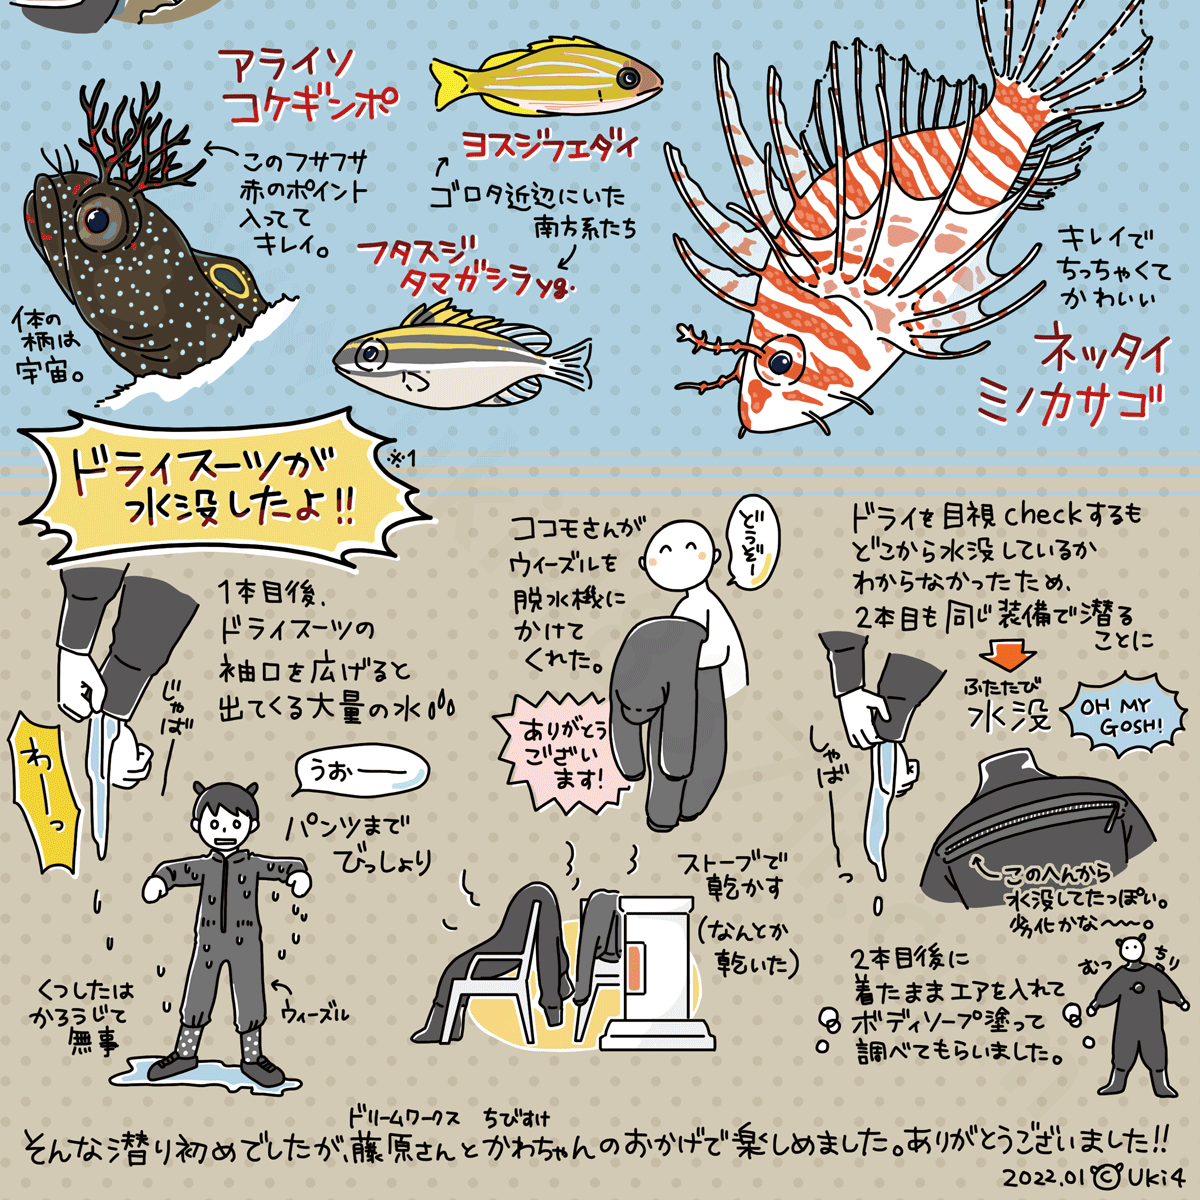 アライソ
コケギンポ
このフサフサ
赤のポイント
入ってて
キレイ。
体の
柄は
宇宙。
ヨスジフエダイ
ゴロタ近辺にいた
南方系たち
フタスジ
タマガシラyg.
キレイで
ちっちゃくて
かわいい
ネッタイ
ミノカサゴ
ドライスーツが
水没したよ!!
※1
1本目後、
ドライスーツの
袖口を広げると
出てくる大量の水
じゃばー
わーっ
うおー
パンツまで
びっしょり
くつしたは
かろうじて
無事
ウィーズル
ココモさんが
ウィーズルを
脱水機に
かけて
くれた。
どうぞー
ありがとう
ござい
ます!
ストーブで
乾かす
(なんとか
乾いた)
ドライを目視checkするも
どこから水没しているか
わからなかったため、
2本目も同じ装備で潜る
ことに
ふたたび
水没
OH MY
GOSH!
しゃばーっ
このへんから
水没してたっぽい。
劣化かな〜〜。
2本目後に
着たままエアを入れて
ボディソープ塗って
調べてもらいました。
むっちり
ドリームワークス ちびすけ
そんな潜り初めでしたが、藤原さんとかわちゃんのおかげで楽しめました。ありがとうございました!!
2022.01 © Uki4